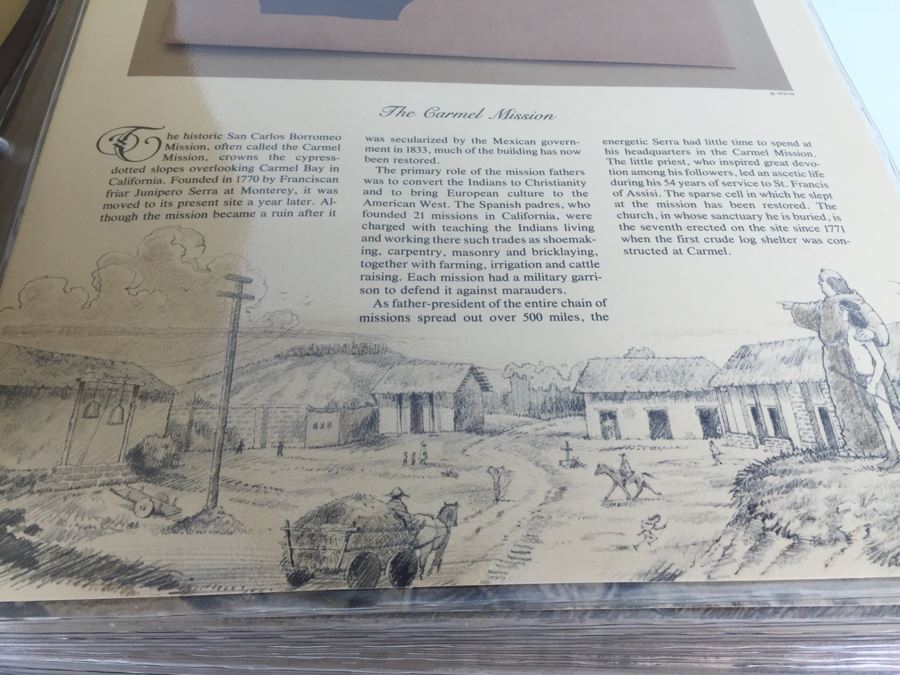 The Carmel Mission
The historic San Carlos Borromeo
Mission, often called the Carmel
Mission, crowns the cypress-
dotted slopes overlooking Carmel Bay in
California. Founded in 1770 by Franciscan
friar Junipero Serra at Monterey, it was
moved to its present site a year later. Al-
though the mission became a ruin after it
was secularized by the Mexican govern-
ment in 1833, much of the building has now
been restored.
The primary role of the mission fathers
was to convert the Indians to Christianity
and to bring European culture to the
American West. The Spanish padres, who
founded 21 missions in California, were
charged with teaching the Indians living
and working there such trades as shoemak-
ing, carpentry, masonry and bricklaying,
together with farming, irrigation and cattle
raising. Each mission had a military garri-
son to defend it against marauders.
As father-president of the entire chain of
missions spread out over 500 miles, the
energetic Serra had little time to spend at
his headquarters in the Carmel Mission.
The little priest, who inspired great devo-
tion among his followers, led an ascetic life
during his 54 years of service to St. Francis
of Assisi. The sparse cell in which he slept
at the mission has been restored. The
church, in whose sanctuary he is buried, is
the seventh erected on the site since 1771
when the first crude log shelter was con-
structed at Carmel.